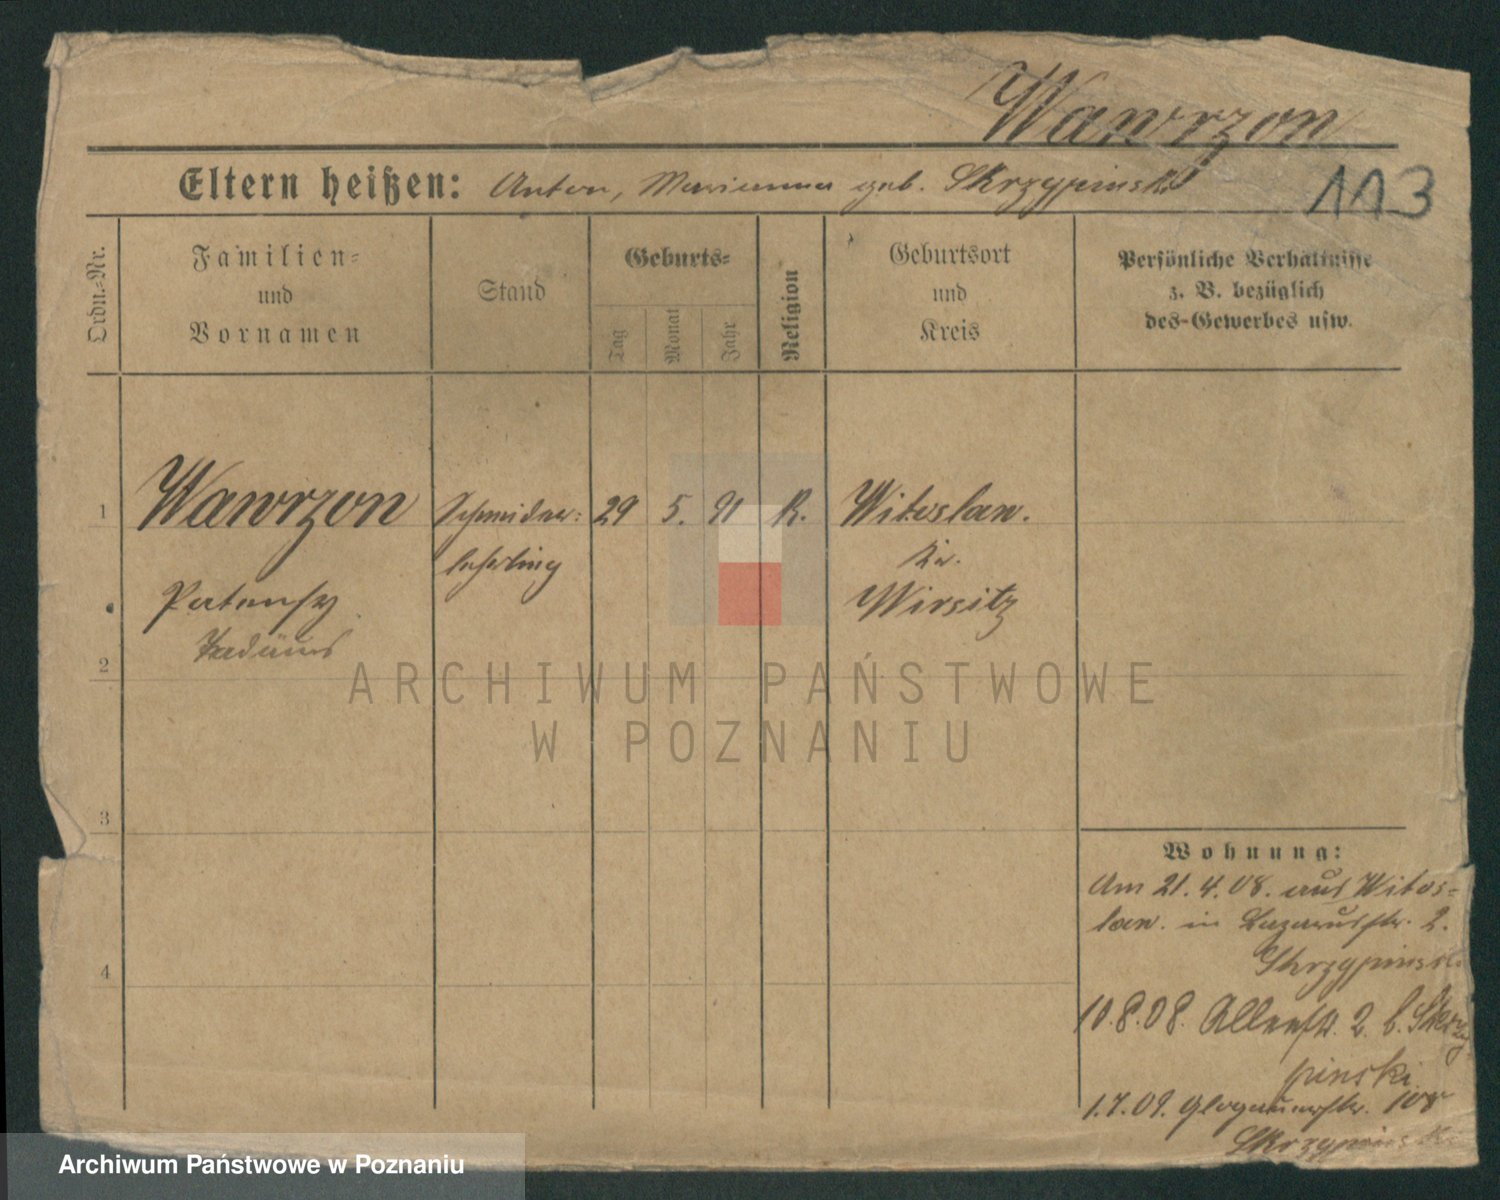 Wawrzon
Eltern heißen: Anton, Marianna geb. Skrzypinski
113
Ordn.-Nr.
Familien-
und
Vornamen
Stand
Geburts-
Tag
Monat
Jahr
Religion
Geburtsort
und
Kreis
Persönliche Verhältnisse
z. B. bezüglich
des Gewerbes usw.
1
Wawrzon Schneider- 29 5. 91 R. Witoslaw.
lehrling Kr.
Wirsitz
2
3
4
Wohnung:
Am 21.4.08. aus Witos-
law. in Lazarusstr. 2.
Skrzypinski
10.8.08. 2 b. Skrzy
pinski
1.7.09. Glogauerstr. 108
Skrzypinski
ARCHIWUM PAŃSTWOWE
W POZNANIU
Archiwum Państwowe w Poznaniu